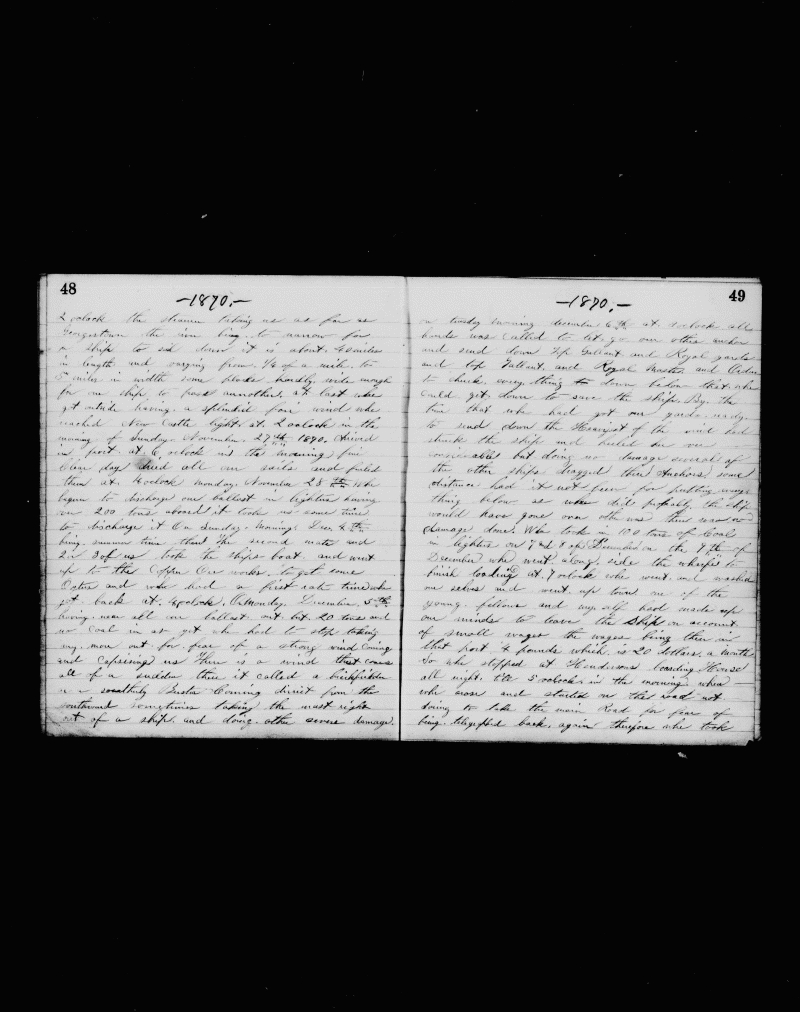 48
-1870,-
2 oclock the steamer taking us as far as
Georgestown the river being to narrow for
a ship to sail down it is about 40 miles
in length and varying from 1/8 of a mile to
5 miles in width some places hardly wide enough
for one ship to pass another, at last whe
got outside having a splendid fair wind whe
reached New Castle light at 2 oclock in the
morning of Sunday. November 27th 1870, arived
in port at 6 oclock in the morning fine
Clear day dried all our sails and furled
them at 4 oclock Monday November 28th whe
begun to discharge our ballast in lighters having
on 200 tons aboard it took us some time
to discharge it On Sunday Morning Dec, 4th
being summer time there the second mate and
2 or 3 of us took the ships boat and went
up to the Copper Ore works to get some
Oesters and whe had a first rate time whe
got back at 4 oclock. On Monday, December 5th
having near all our ballast out but 20 tons and
no Coal in as yet whe had to stop taking
any more out for fear of a strong wind Coming
and Capsizing us there is a wind that comes
all of a sudden there it called a brickfielder
or a southerly Buster Coming direct from the
southward sometimes taking the mast right
out of a ship and doing other severe damage.
49
-1870,-
on tuesday evening december 6th at oclock all
hands was Called to let go our other anchor
and send down Top Gallant and Royal yards
and top Gallant and Royal Masts and Order
to chuck every thing down below that whe
Could get down to save the ship. By the
time that whe had got our yards ready
to send down the Heaviest of the wind had
struck the ship and heeled her over
considerable but doing no damage several of
the other ships dragged their Anchors some
distance had it not been for putting every
thing below as whe did probably the ship
would have gone over other wise there was no
damage done. Whe took in 100 tons of Coal
in lighters on 7 and 8 of December on the 9th of
December whe went along side the wharfe to
finish loading at 7 oclock whe went and washed
our selves and went up town one of the
young fellows and my self had made up
our minds to leave the Ship on account
of small wages the wages being then in
that port 4 pounds which is 20 dollars a month
So whe stopped at Hendersons boarding House
all night till 5 oclock in the morning when
whe arose and started on the road not
daring to take the main Road for fear of
being telegrafed back again therefore whe took